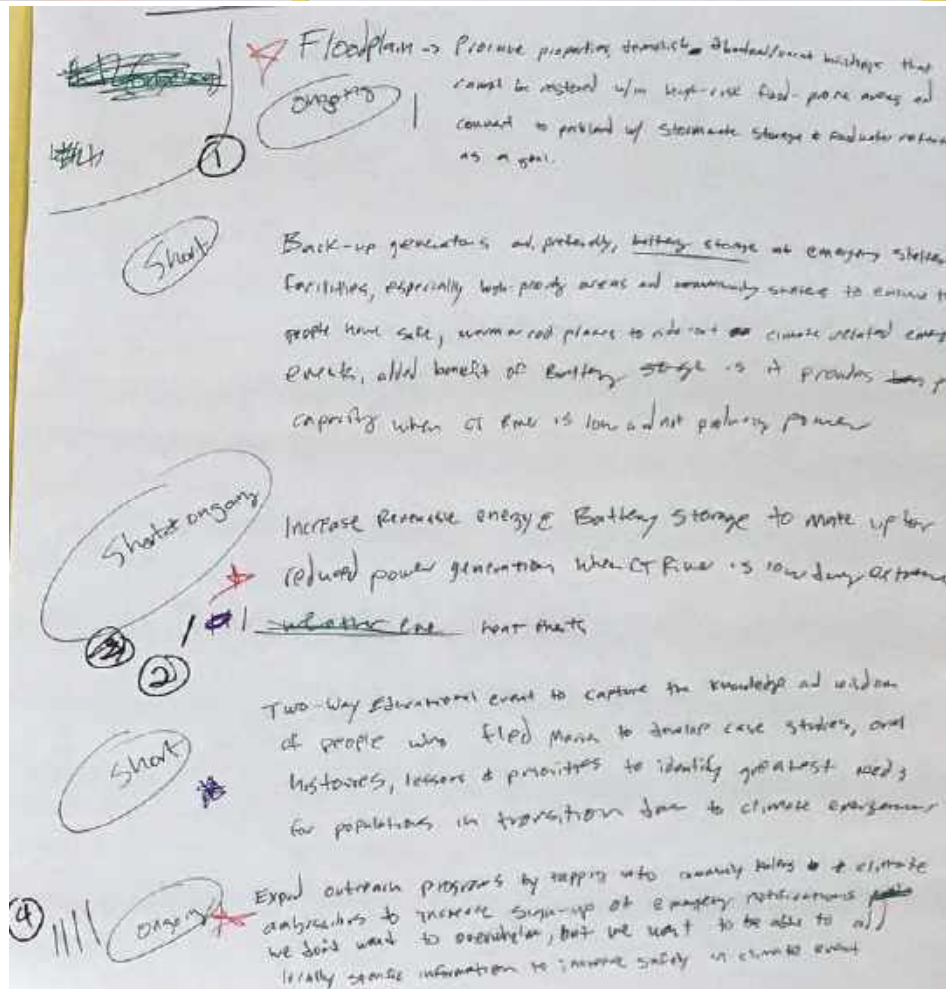 Floodplain -> Procure properties, demolish abandoned/vacant buildings that
ongoing
cannot be restored w/in high-risk flood-prone areas and
convert to w/ stormwater storage & floodwater
as a goal.
1
Short
Back-up generators and, preferably, battery storage at emergency shelter
facilities, especially high-priority areas and community to ensure
people have safe, warm or cool places to ride-out climate related
events, added benefit of Battery storage is it provides
capacity when CT River is low and not producing power
Short & ongoing
Increase Renewable energy & Battery Storage to make up for
reduced power generation when CT River is low during extreme
weather heat events
2
Two-Way Educational event to capture the knowledge and wisdom
Short
of people who fled Maria to develop case studies, oral
histories, lessons & priorities to identify greatest needs
for populations in transition due to climate emergencies
4
ongoing
Expand outreach programs by tapping into community & climate
ambassadors to increase sign-up of emergency notifications
we don't want to overwhelm, but we want to be able to add
locally specific information to increase safety in climate event